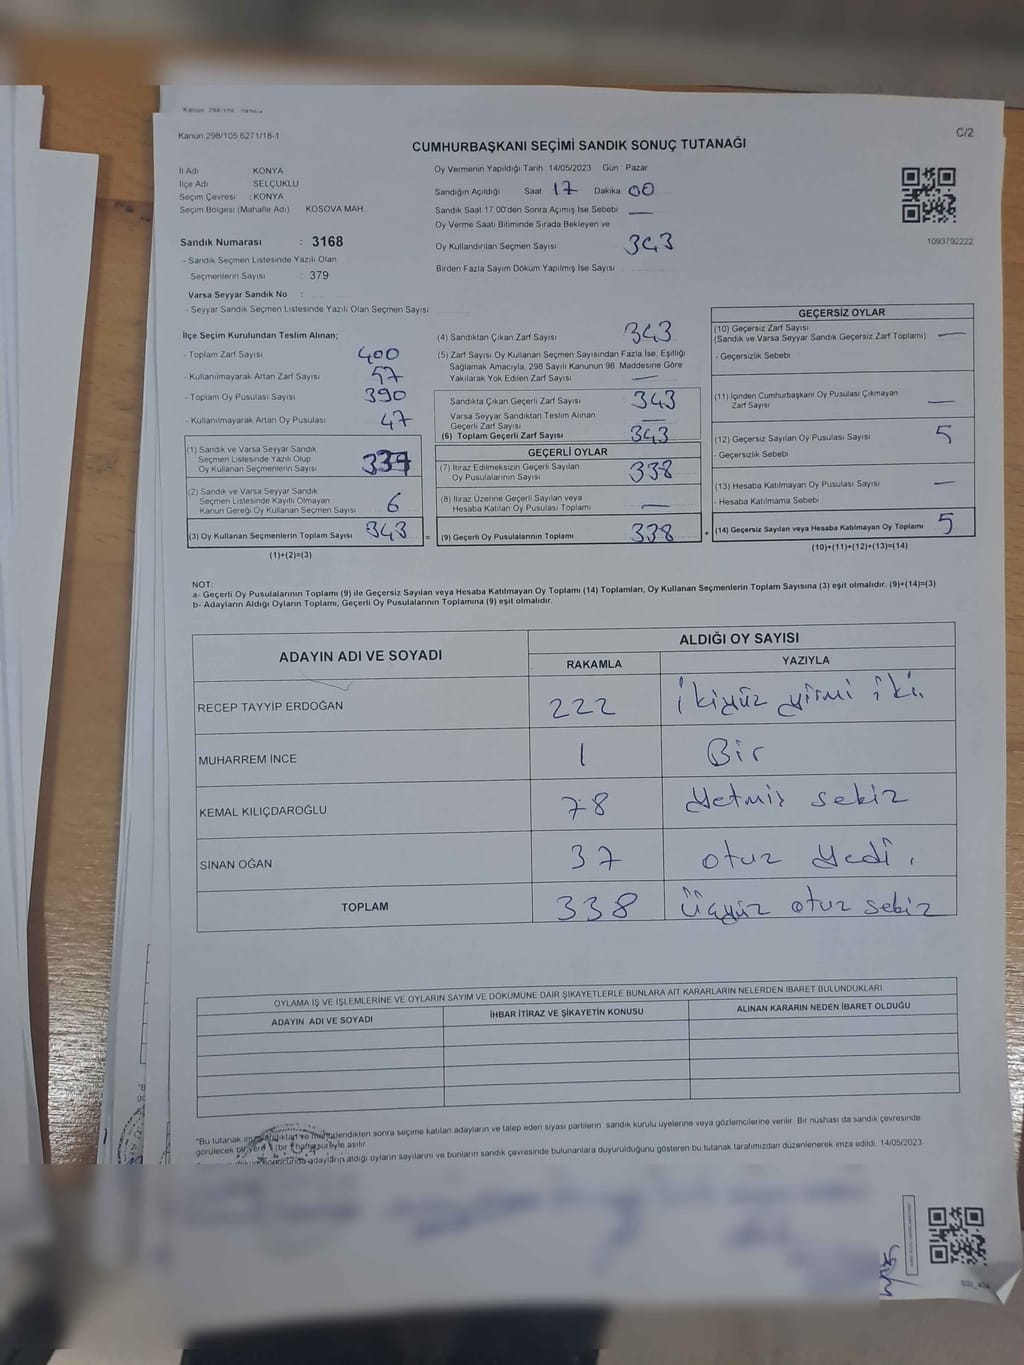 Kanun 298/105
Kanun 298/105 6271/18-1
C/2
CUMHURBAŞKANI SEÇİMİ SANDIK SONUÇ TUTANAĞI
İl Adı KONYA
İlçe Adı SELÇUKLU
Seçim Çevresi : KONYA
Seçim Bölgesi (Mahalle Adı) KOSOVA MAH.
Sandık Numarası : 3168
- Sandık Seçmen Listesinde Yazılı Olan
Seçmenlerin Sayısı : 379
Varsa Seyyar Sandık No :
- Seyyar Sandık Seçmen Listesinde Yazılı Olan Seçmen Sayısı
Oy Vermenin Yapıldığı Tarih 14/05/2023 Gün Pazar
Sandığın Açıldığı Saat 17 Dakika 00
Sandık Saat 17:00'den Sonra Açımış İse Sebebi —
Oy Verme Saati Bitiminde Sırada Bekleyen ve
Oy Kullandırılan Seçmen Sayısı 343
Birden Fazla Sayım Döküm Yapılmış İse Sayısı
1093792222
İlçe Seçim Kurulundan Teslim Alınan;
- Toplam Zarf Sayısı 400
- Kullanılmayarak Artan Zarf Sayısı 57
- Toplam Oy Pusulası Sayısı 390
- Kullanılmayarak Artan Oy Pusulası 47
(1) Sandık ve Varsa Seyyar Sandık
Seçmen Listesinde Yazılı Olup
Oy Kullanan Seçmenlerin Sayısı 337
(2) Sandık ve Varsa Seyyar Sandık
Seçmen Listesinde Kayıtlı Olmayan
Kanun Gereği Oy Kullanan Seçmen Sayısı 6
(3) Oy Kullanan Seçmenlerin Toplam Sayısı 343 =
(1)+(2)=(3)
(4) Sandıktan Çıkan Zarf Sayısı 343
(5) Zarf Sayısı Oy Kullanan Seçmen Sayısından Fazla İse, Eşitliği
Sağlamak Amacıyla, 298 Sayılı Kanunun 98. Maddesine Göre
Yakılarak Yok Edilen Zarf Sayısı —
Sandıkta Çıkan Geçerli Zarf Sayısı 343
Varsa Seyyar Sandıktan Teslim Alınan
Geçerli Zarf Sayısı
(6) Toplam Geçerli Zarf Sayısı 343
GEÇERLİ OYLAR
(7) İtiraz Edilmeksizin Geçerli Sayılan
Oy Pusulalarının Sayısı 338
(8) İtiraz Üzerine Geçerli Sayılan veya
Hesaba Katılan Oy Pusulası Toplamı —
(9) Geçerli Oy Pusulalarının Toplamı 338 +
GEÇERSİZ OYLAR
(10) Geçersiz Zarf Sayısı
(Sandık ve Varsa Seyyar Sandık Geçersiz Zarf Toplamı) —
- Geçersizlik Sebebi
(11) İçinden Cumhurbaşkanı Oy Pusulası Çıkmayan
Zarf Sayısı —
(12) Geçersiz Sayılan Oy Pusulası Sayısı 5
- Geçersizlik Sebebi
(13) Hesaba Katılmayan Oy Pusulası Sayısı —
- Hesaba Katılmama Sebebi :
(14) Geçersiz Sayılan veya Hesaba Katılmayan Oy Toplamı 5
(10)+(11)+(12)+(13)=(14)
NOT:
a- Geçerli Oy Pusulalarının Toplamı (9) ile Geçersiz Sayılan veya Hesaba Katılmayan Oy Toplamı (14) Toplamları, Oy Kullanan Seçmenlerin Toplam Sayısına (3) eşit olmalıdır. (9)+(14)=(3)
b- Adayların Aldığı Oyların Toplamı, Geçerli Oy Pusulalarının Toplamına (9) eşit olmalıdır.
ADAYIN ADI VE SOYADI ALDIĞI OY SAYISI
RAKAMLA YAZIYLA
RECEP TAYYİP ERDOĞAN 222 İkiyüz yirmi iki.
MUHARREM İNCE 1 Bir
KEMAL KILIÇDAROĞLU 78 Yetmiş sekiz
SİNAN OĞAN 37 otuz yedi.
TOPLAM 338 Üçyüz otuz sekiz
OYLAMA İŞ VE İŞLEMLERİNE VE OYLARIN SAYIM VE DÖKÜMÜNE DAİR ŞİKAYETLERLE BUNLARA AİT KARARLARIN NELERDEN İBARET BULUNDUKLARI
ADAYIN ADI VE SOYADI İHBAR İTİRAZ VE ŞİKAYETİN KONUSU ALINAN KARARIN NEDEN İBARET OLDUĞU
"Bu tutanak sonra seçime katılan adayların ve talep eden siyasi partilerin sandık kurulu üyelerine veya gözlemcilerine verilir. Bir nüshası da sandık çevresinde
görülecek bir yere 1 (bir) hafta süreyle asılır
adayların aldığı oyların sayılarını ve bunların sandık çevresinde bulunanlara duyurulduğunu gösteren bu tutanak tarafımızdan düzenlenerek imza edildi. 14/05/2023